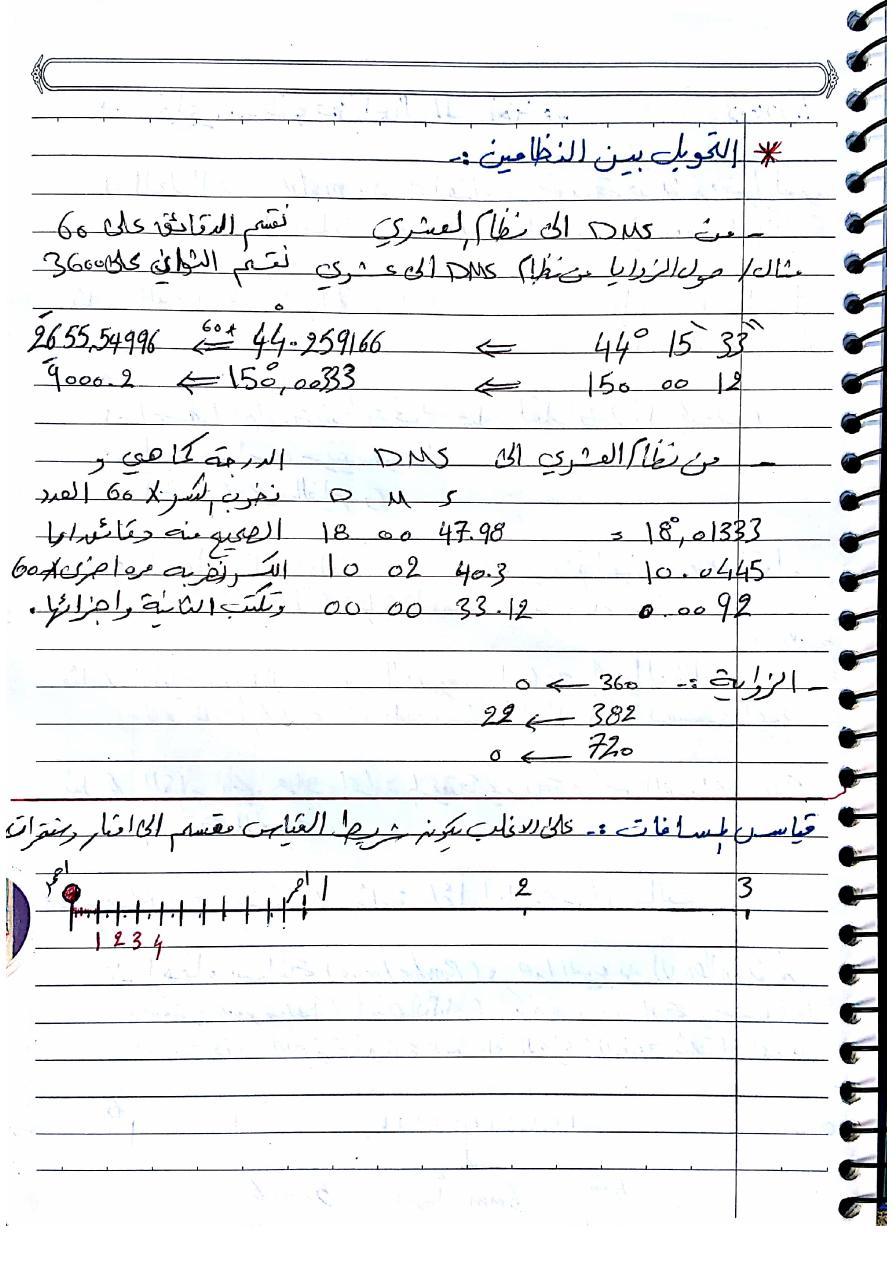 * التحويل بين النظامين :-
- من DMS الى نظام العشري نقسم الدقائق على 60
مثال / حول الزوايا من نظام DMS الى عشري نقسم الثواني على 3600
44° 15` 33`` ⇐ 44.259166° ⇐ 60* 2655,54996
150 00 12 ⇐ 150°,00333 ⇐ 9000.2
- من نظام العشري الى DMS الدرجة كما هي و
D M S نضرب الكسر X 60 العدد
18°,01333 = 18 00 47.98 الصحيح منه دقائق اما
10.0445 10 02 40.3 الكسر نضربه مره اخرى X 60
0.0092 00 00 33.12 وتكتب الثانية واجزائها.
- الزواية :- 360 ← 0
382 ← 22
720 ← 0
قياس المسافات :- على الاغلب يكون شريط القياس مقسم الى امتار وسنتمرات
1 2 3
1 2 3 4